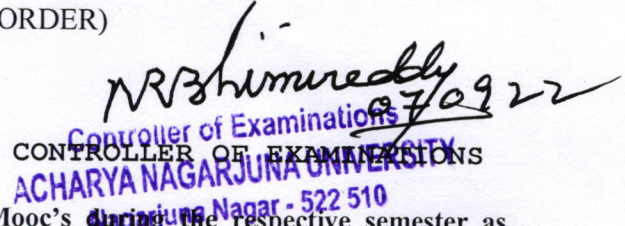 ORDER)
NRBhimireddy
07/0922
Controller of Examinations
CONTROLLER OF EXAMINATIONS
ACHARYA NAGARJUNA UNIVERSITY
Nagarjuna Nagar - 522 510
Mooc's during the respective semester as